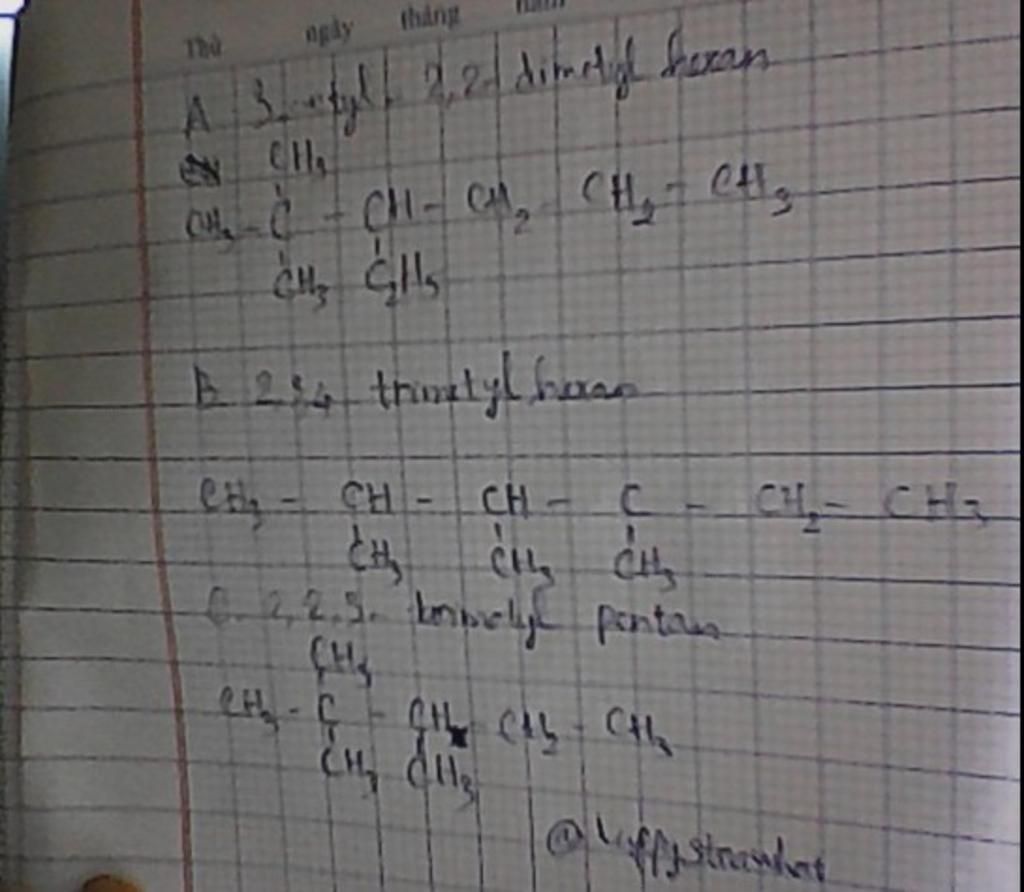 Thứ ngày tháng năm
A 3. etyl. 2,2. dimetyl hexan
CH3
CH3 - C - CH - CH2 CH2 - CH3
CH3 C2H5
B 2 3 4 trimetyl hexan
CH3 - CH - CH - C - CH2 - CH3
CH3 CH3 CH3
C. 2, 2, 3. trimetyl pentan
CH3
CH3 - C - CH - CH2 - CH3
CH3 CH3